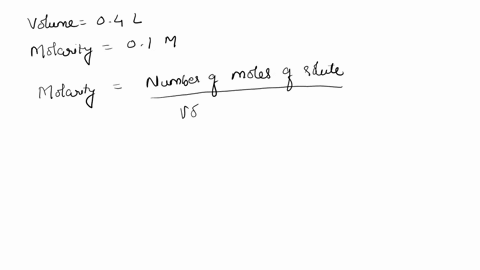 Volume = 0.4 L
Molarity = 0.1 M
Molarity = Number of moles of solute
vo